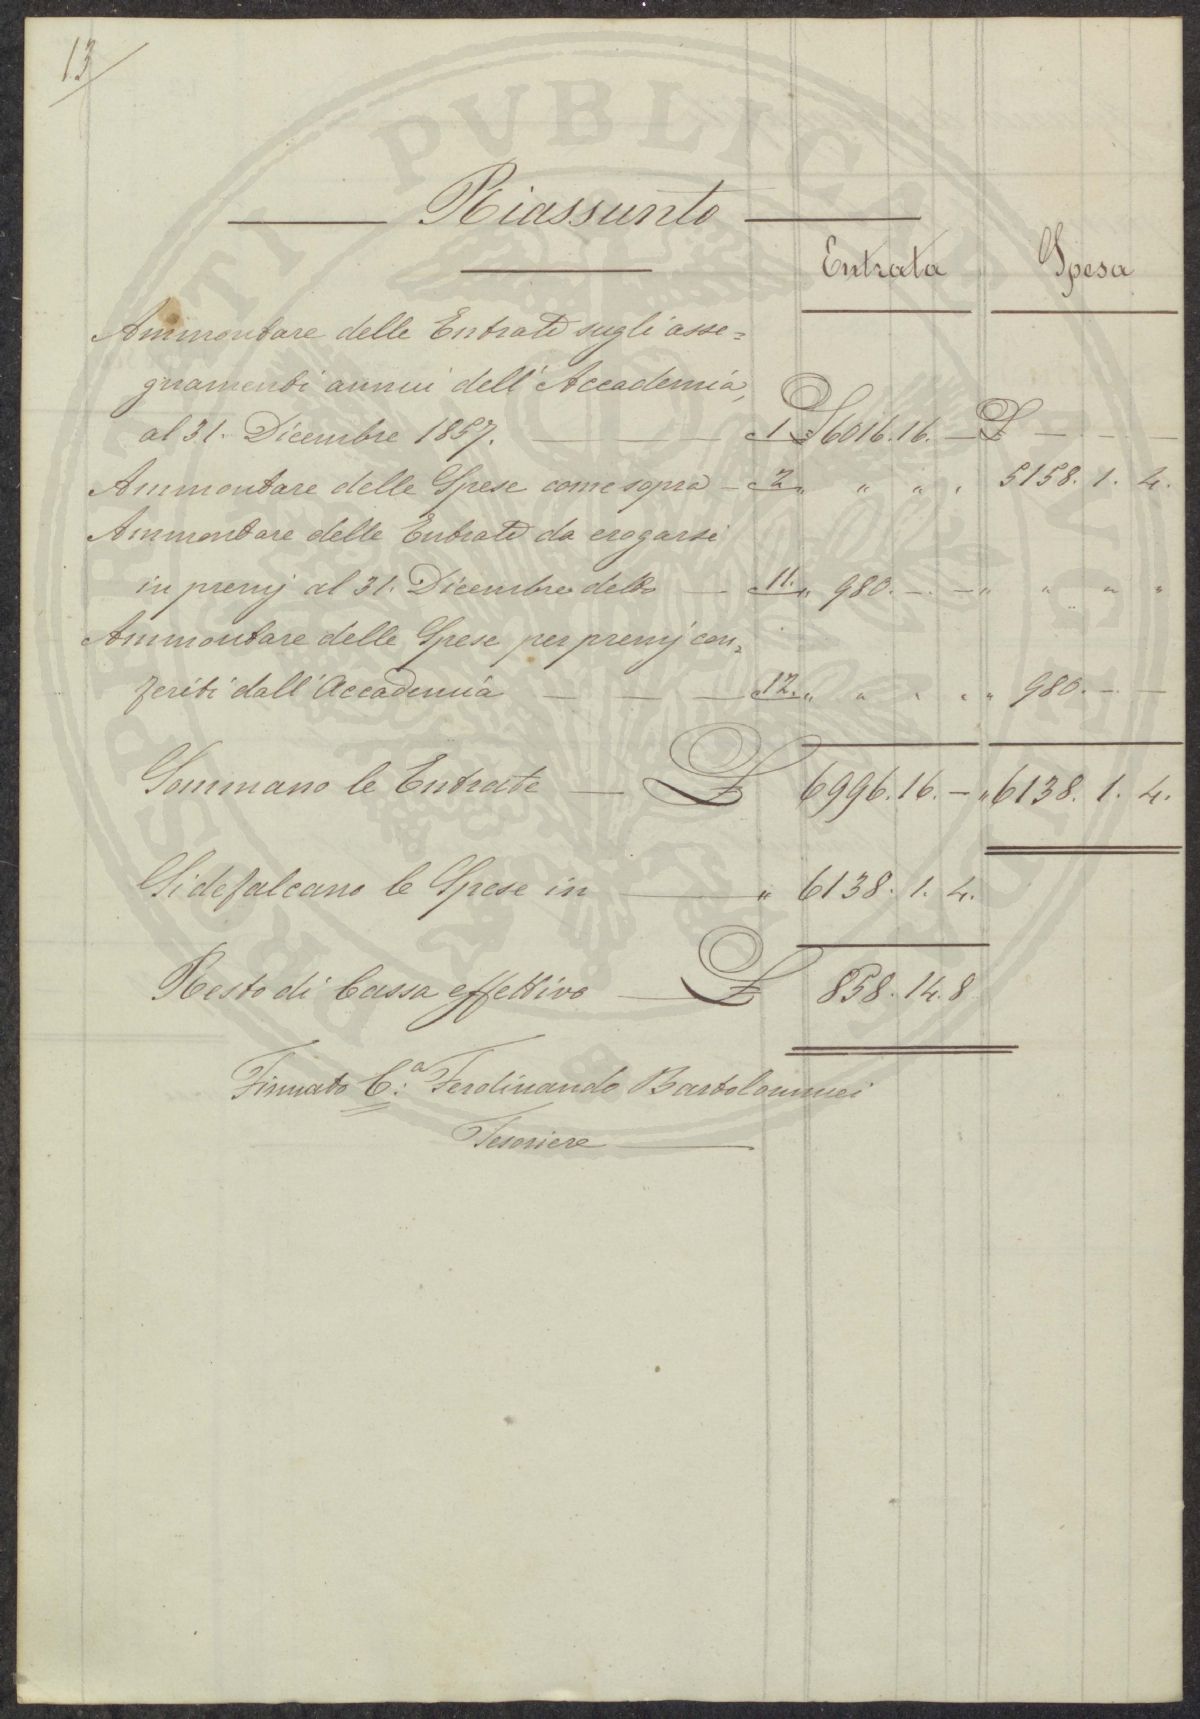 13
Riassunto
Entrata Spesa
Ammontare delle Entrate sugli asse=
gnamenti annui dell'Accademia,
al 31. Dicembre 1857. — 1 £ 6016.16. — £ — — —
Ammontare delle Spese come sopra — 2 " " " " 5158. 1. 4.
Ammontare delle Entrate da erogarsi
in premj al 31. Dicembre detto — 11. " 980. — . — " " " "
Ammontare delle Spese per premj con=
feriti dall'Accademia — — — 12. " " " " " 980. — . —
Sommano le Entrate — £ 6996.16. — " 6138. 1. 4.
Si defalcano le Spese in — " 6138. 1. 4.
Resto di Cassa effettivo — £ 858. 14. 8
Firmato C:a Ferdinando Bartolommei
Tesoriere
PROSPERITATI PVBLICAE AVGENDAE